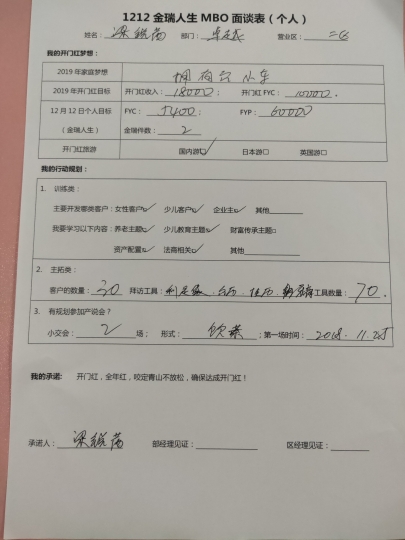 1212 金瑞人生 MBO 面谈表（个人）
姓名： 部门： 卓越 营业区： 二区
我的开门红梦想：
2019 年家庭梦想 拥有 小车
2019 年开门红目标 开门红收入：18000； 开门红 FYC： 10000.
12 月 12 日个人目标 FYC： 5400 FYP： 60000
（金瑞人生） 金瑞件数： 2
开门红旅游 国内游☑ 日本游□ 英国游□
我的行动规划：
1. 训练类：
主要开发哪类客户：女性客户☑ 少儿客户☑ 企业主☑ 其他
我要学习以下内容：养老主题☑ 少儿教育主题☑ 财富传承主题□
资产配置☑ 法商相关☑ 其他
2. 主拓类：
客户的数量：30 拜访工具： 台历、挂历、 工具数量：70.
3. 有规划参加产说会？
小交会： 2 场； 形式： ；第一场时间： 2018.11.25
我的承诺： 开门红，全年红，咬定青山不放松，确保达成开门红！
承诺人： 部经理见证： 区经理见证：